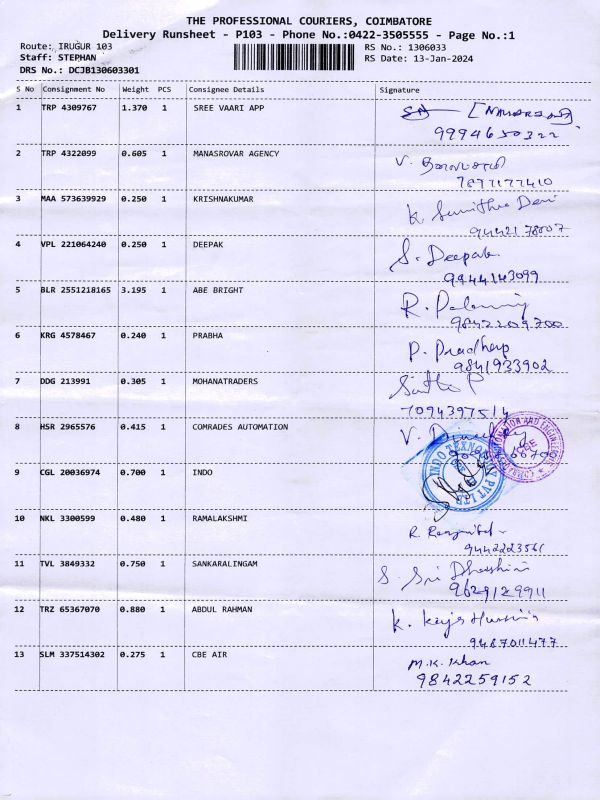 THE PROFESSIONAL COURIERS, COIMBATORE
Delivery Runsheet - P103 - Phone No.:0422-3505555 - Page No.:1
Route: IRUGUR 103
RS No.: 1306033
Staff: STEPHAN
RS Date: 13-Jan-2024
DRS No.: DCJB130603301
S No Consignment No Weight PCS Consignee Details Signature
1 TRP 4309767 1.370 1 SREE VAARI APP
9994650322
2 TRP 4322099 0.605 1 MANASROVAR AGENCY V.
7897177410
3 MAA 573639929 0.250 1 KRISHNAKUMAR K. Sunithra Devi
9442178007
4 VPL 221064240 0.250 1 DEEPAK S. Deepak
9944143099
5 BLR 2551218165 3.195 1 ABE BRIGHT R.
9842209700
6 KRG 4578467 0.240 1 PRABHA P. Pradheep
9841933902
7 DDG 213991 0.305 1 MOHANATRADERS
7094397514
8 HSR 2965576 0.415 1 COMRADES AUTOMATION V.
9 CGL 20036974 0.700 1 INDO
INDO PVT LTD
10 NKL 3300599 0.480 1 RAMALAKSHMI R.
9442223561
11 TVL 3849332 0.750 1 SANKARALINGAM S. Sri Dharshini
9629129911
12 TRZ 65367070 0.880 1 ABDUL RAHMAN K.
9487011477
13 SLM 337514302 0.275 1 CBE AIR M.K. Khan
9842259152